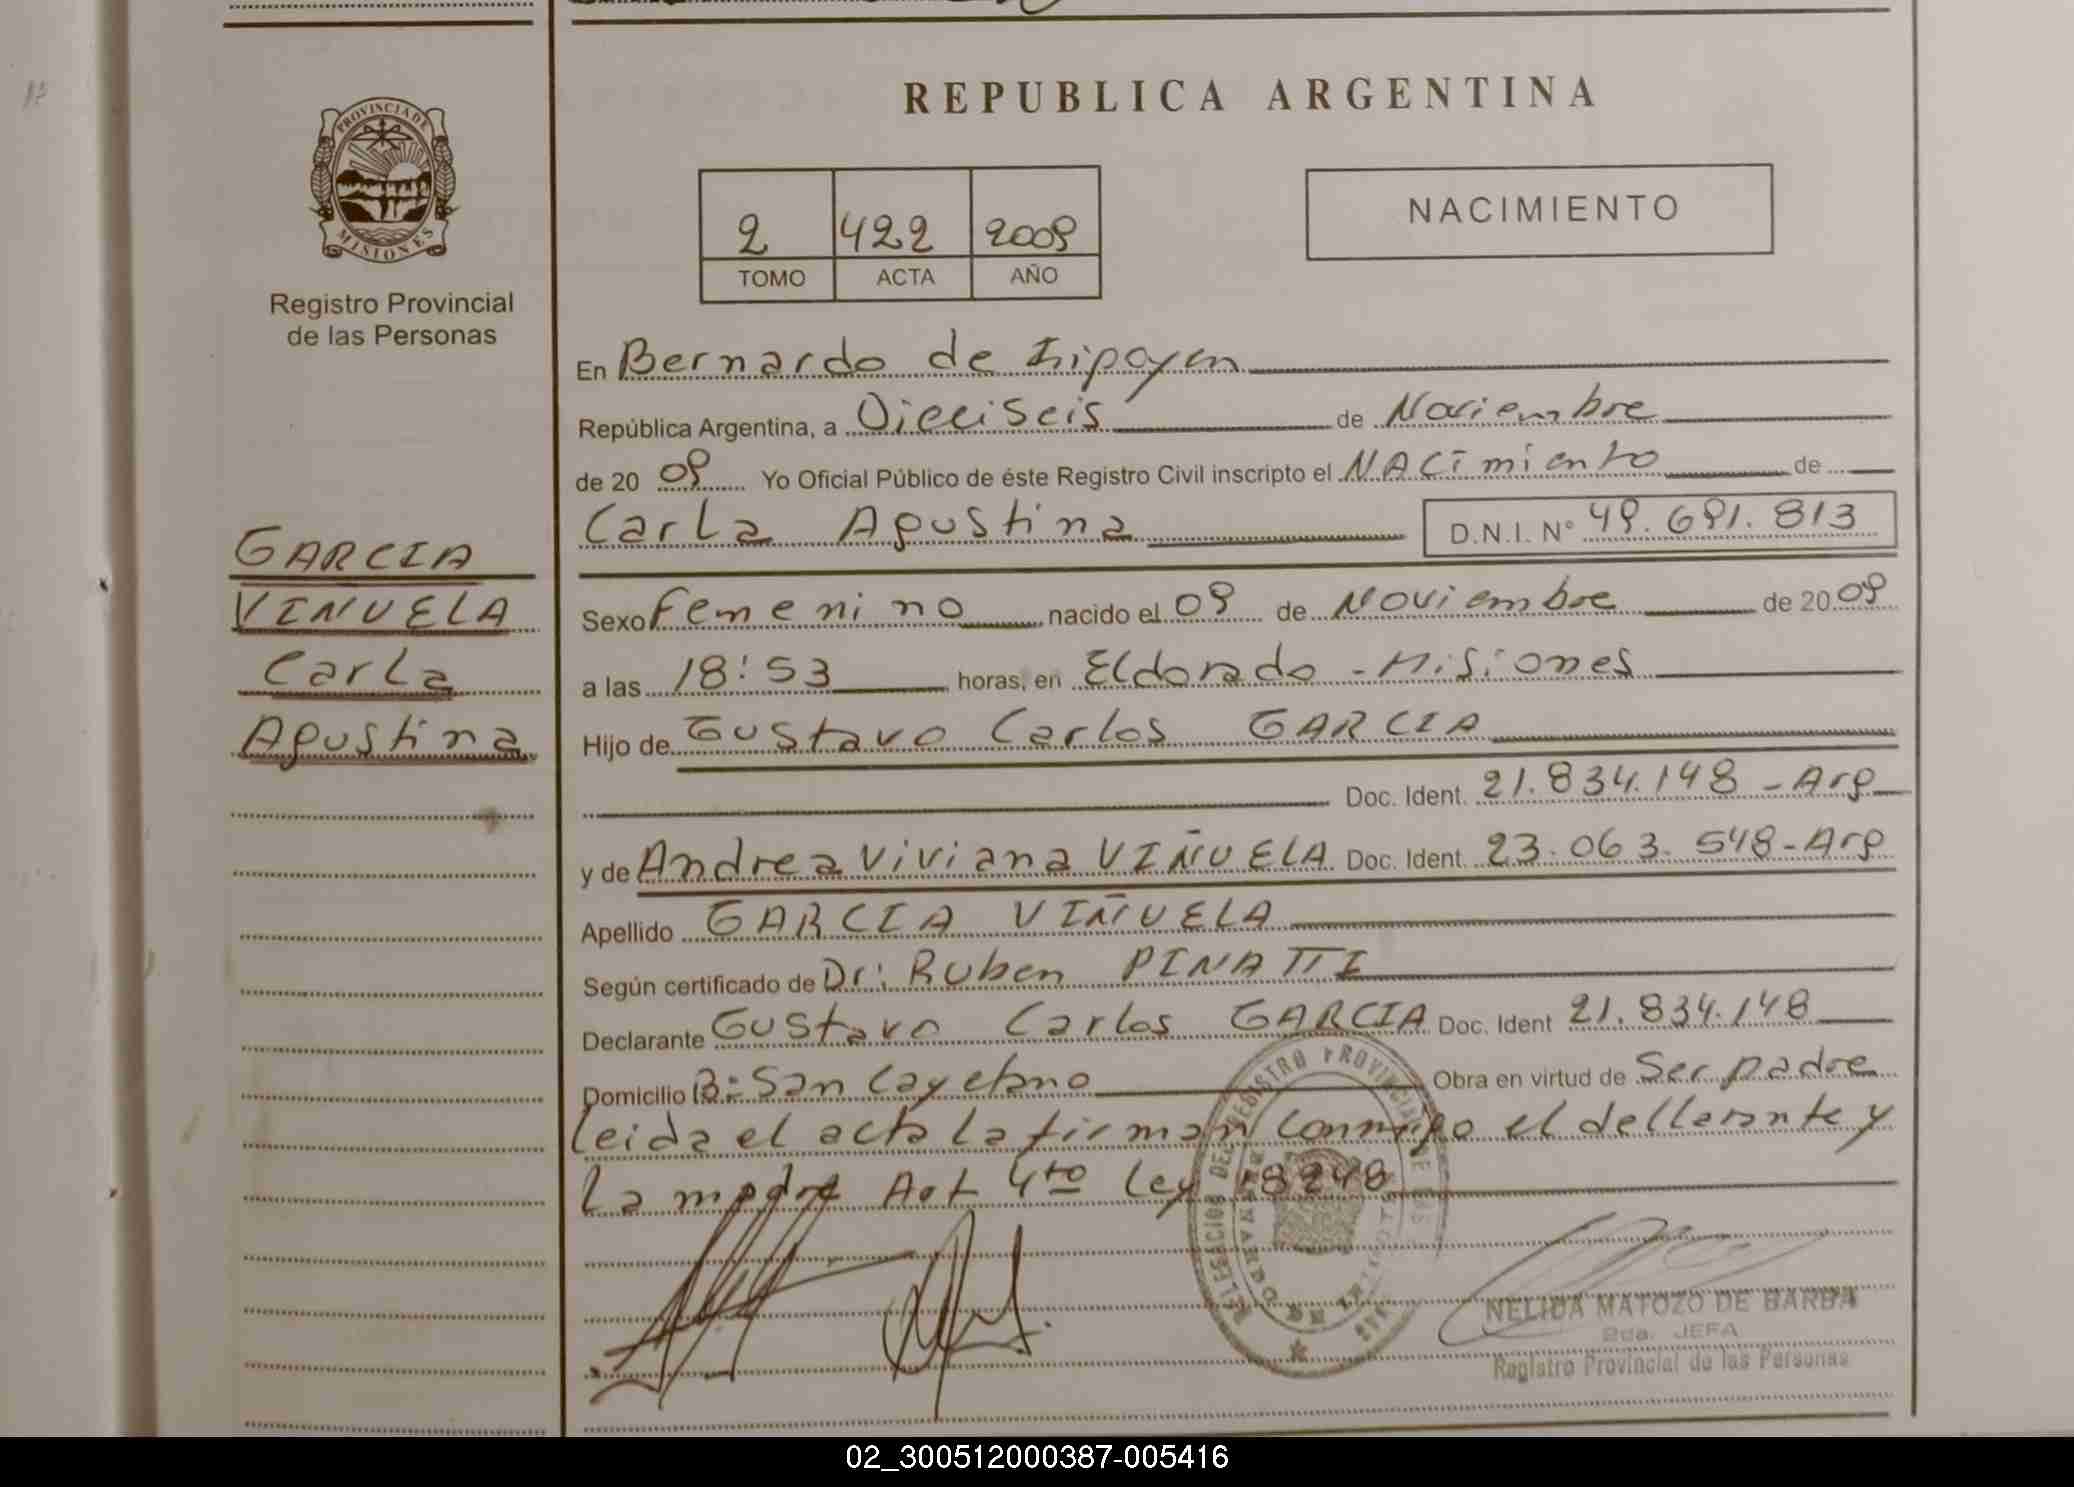 PROVINCIA DE
MISIONES
Registro Provincial
de las Personas
GARCIA
VINUELA
Carla
Agustina
REPUBLICA ARGENTINA
2 422 2009
TOMO ACTA AÑO
NACIMIENTO
En Bernardo de Irigoyen
República Argentina, a Dieciseis de Noviembre
de 20 09 Yo Oficial Público de éste Registro Civil inscripto el NACimiento de
Carla Agustina D.N.I. Nº 49.691.813
Sexo Femenino nacido el 09 de Noviembre de 20 09
a las 18:53 horas, en Eldorado - Misiones
Hijo de Gustavo Carlos GARCIA
Doc. Ident. 21.834.148 - Arg
y de Andrea Viviana VIÑUELA Doc. Ident. 23.063.548 - Arg
Apellido GARCIA VIÑUELA
Según certificado de Dr: Ruben PINATTI
Declarante Gustavo Carlos GARCIA Doc. Ident 21.834.148
Domicilio B: San Cayetano Obra en virtud de Ser padre
Leida el acta la firman conmigo el dellarante y
La madre Art 4to Ley 18248
NELIDA MATOZO DE BARBA
2da. JEFA
Registro Provincial de las Personas
02_300512000387-005416